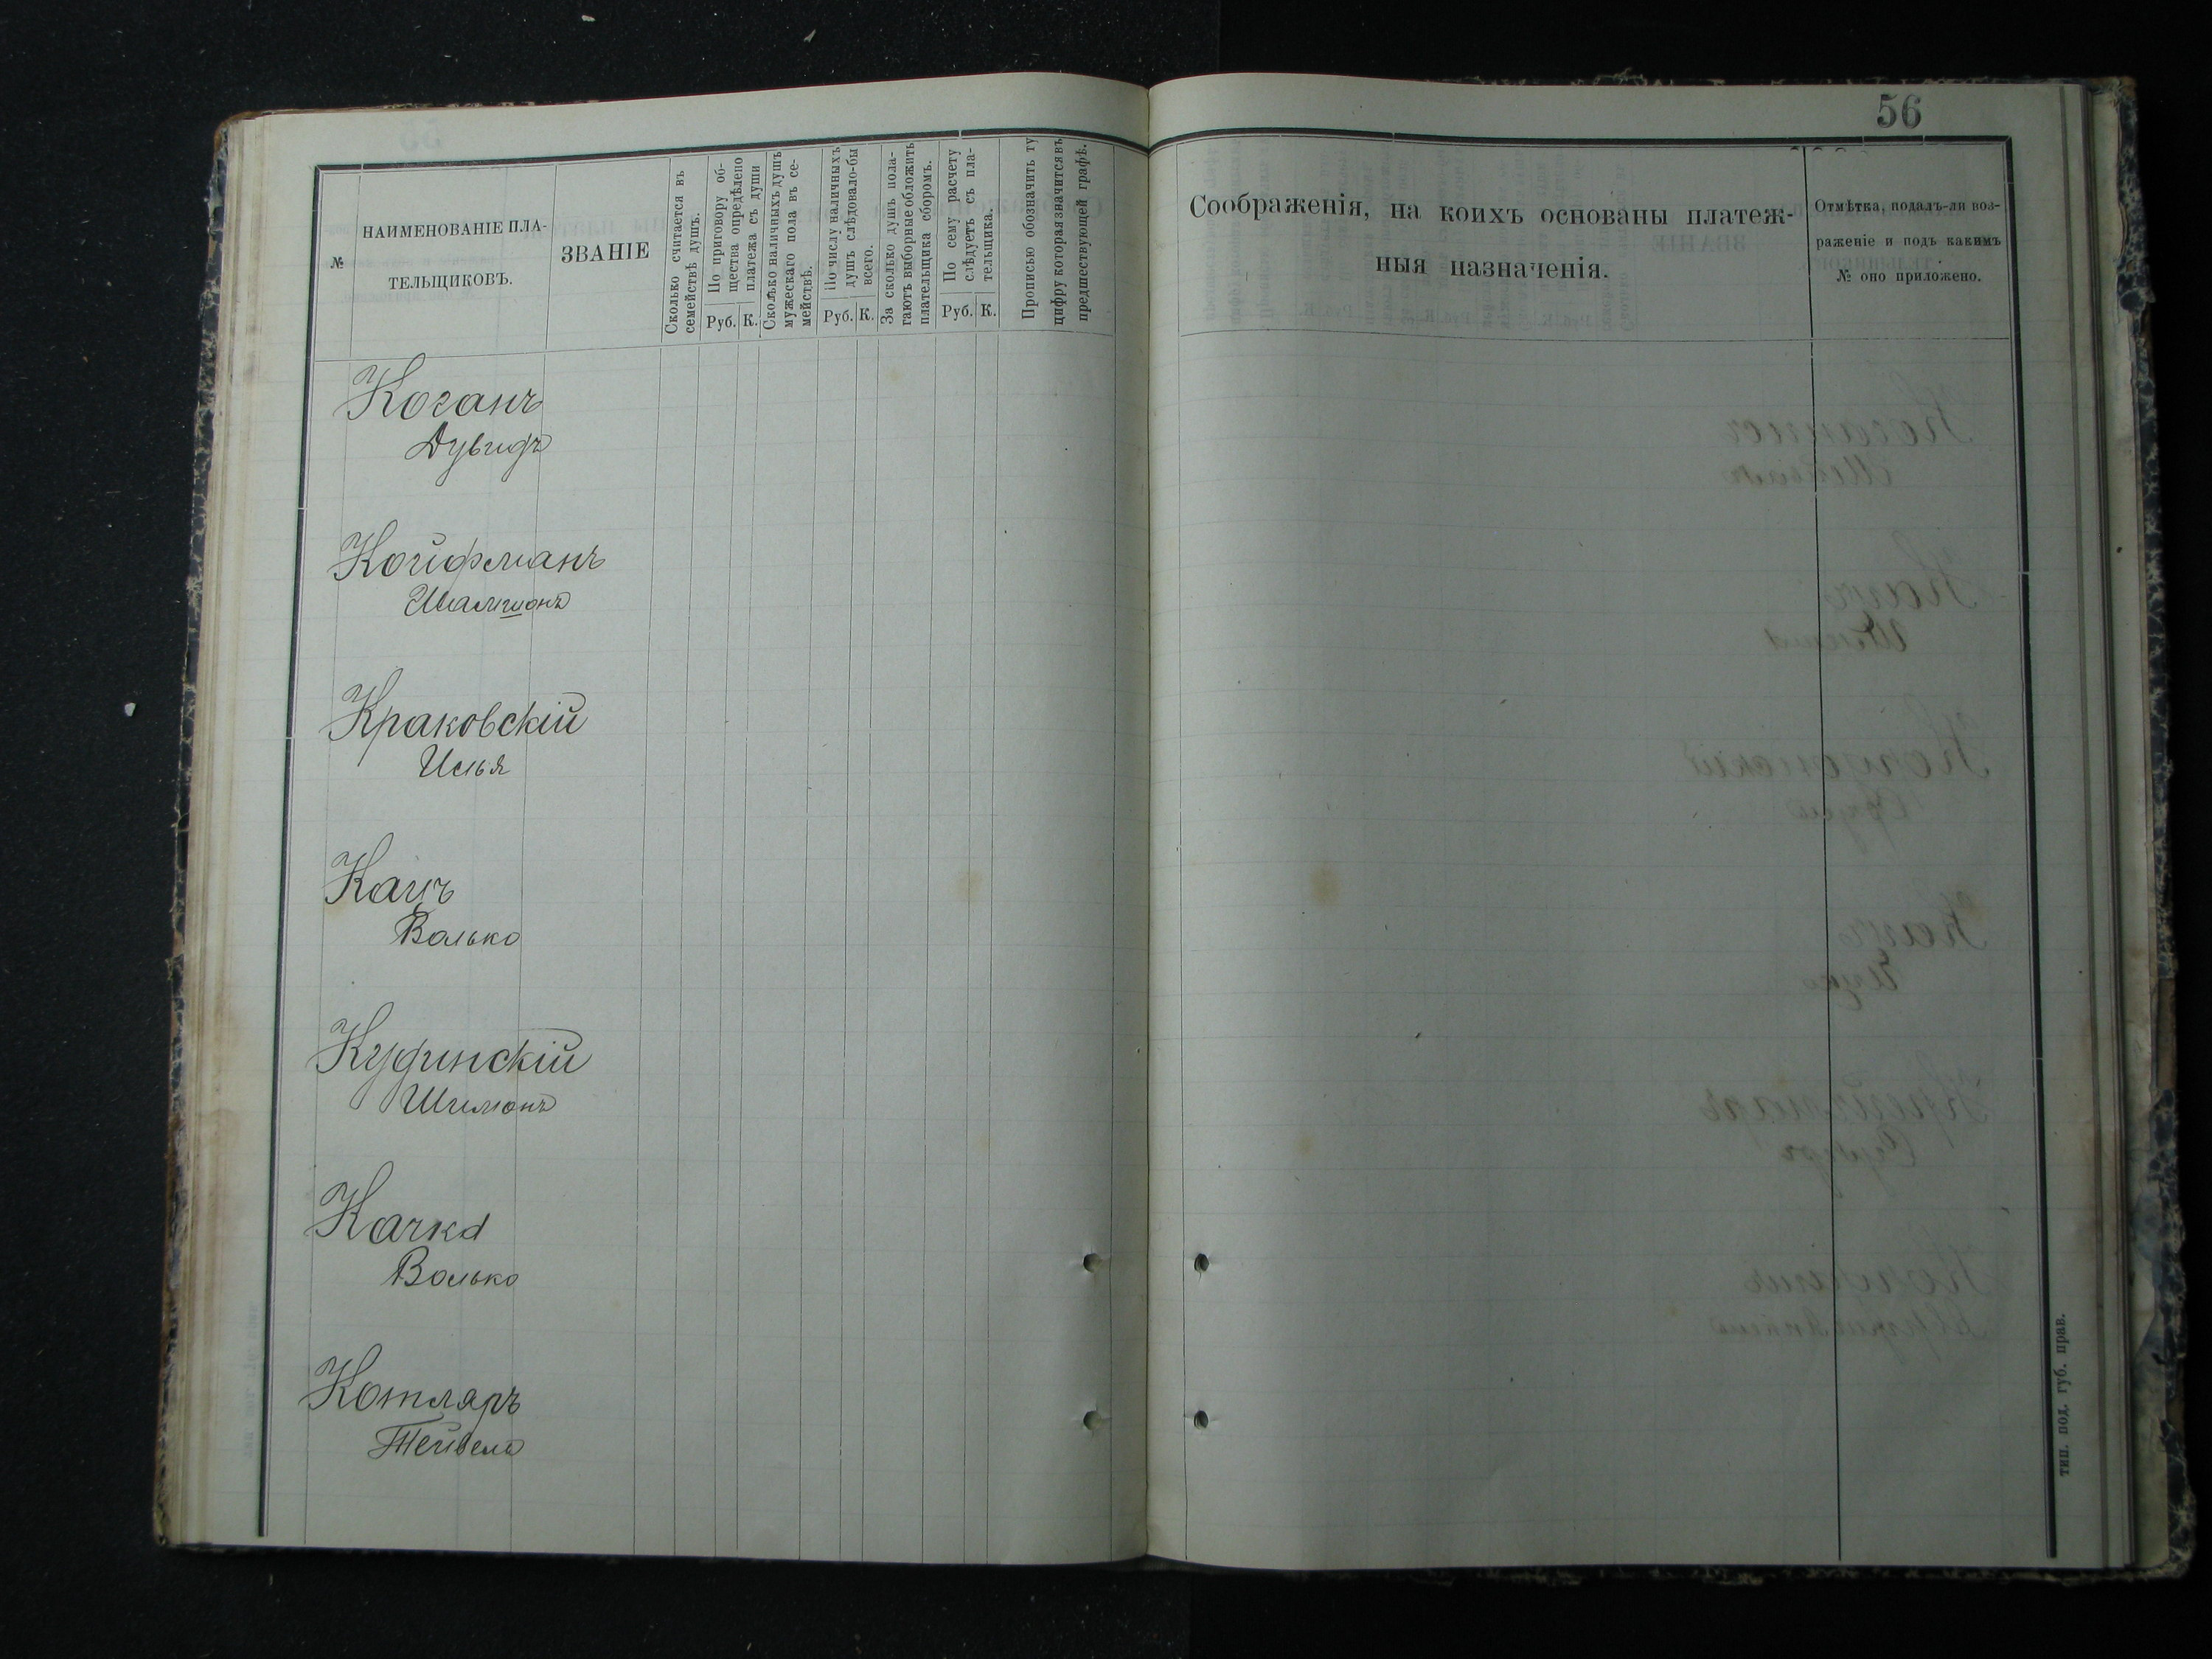 56
№
НАИМЕНОВАНІЕ ПЛА-
ТЕЛЬЩИКОВЪ.
ЗВАНІЕ
Сколько считается въ
семействѣ душъ.
По приговору об-
щества опредѣлено
платежа съ души
Руб. К.
Сколько наличныхъ душъ
мужескаго пола въ се-
мействѣ.
По числу наличныхъ
душъ слѣдовало-бы
всего.
Руб. К.
За сколько душъ пола-
гаютъ выборные обложить
плательщика сборомъ.
По сему расчету
слѣдуетъ съ пла-
тельщика.
Руб. К.
Прописью обозначить ту
цифру которая значится въ
предшествующей графѣ.
Соображенія, на коихъ основаны платеж-
ныя назначенія.
Отмѣтка, подалъ-ли воз-
раженіе и подъ какимъ
№ оно приложено.
Коганъ
Дувидъ
Койфманъ
Шамшонъ
Краковскій
Илья
Кацъ
Волько
Кудинскій
Шимонъ
Качка
Волько
Котляръ
Тейвель
тип. под. губ. прав.